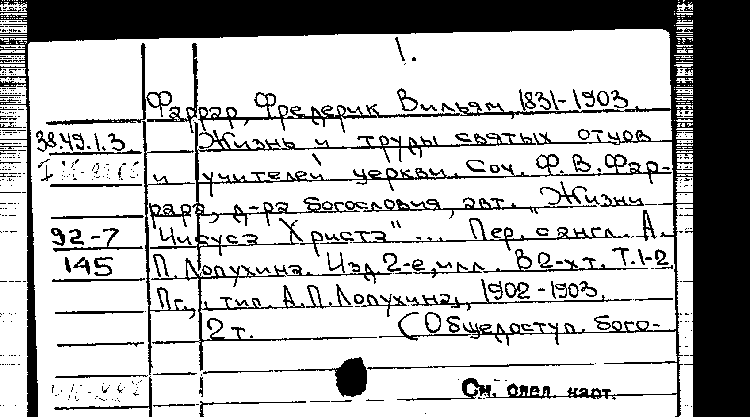 1.
Фаррар, Фредерик Вильям, 1831-1903.
38.49.1.3. Жизнь и труды святых отцов
и учителей церкви. Соч. Ф. В. Фар-
рара, д-ра богословия, авт. "Жизни
92-7 Иисуса Христа"... Пер. с англ. А.
145 П. Лопухина. Изд. 2-е, илл. В 2-х т. Т. 1-2.
Пг., тип. А.П.Лопухина, 1902-1903.
2 т. (Общедоступ. бого-
См. след. карт.